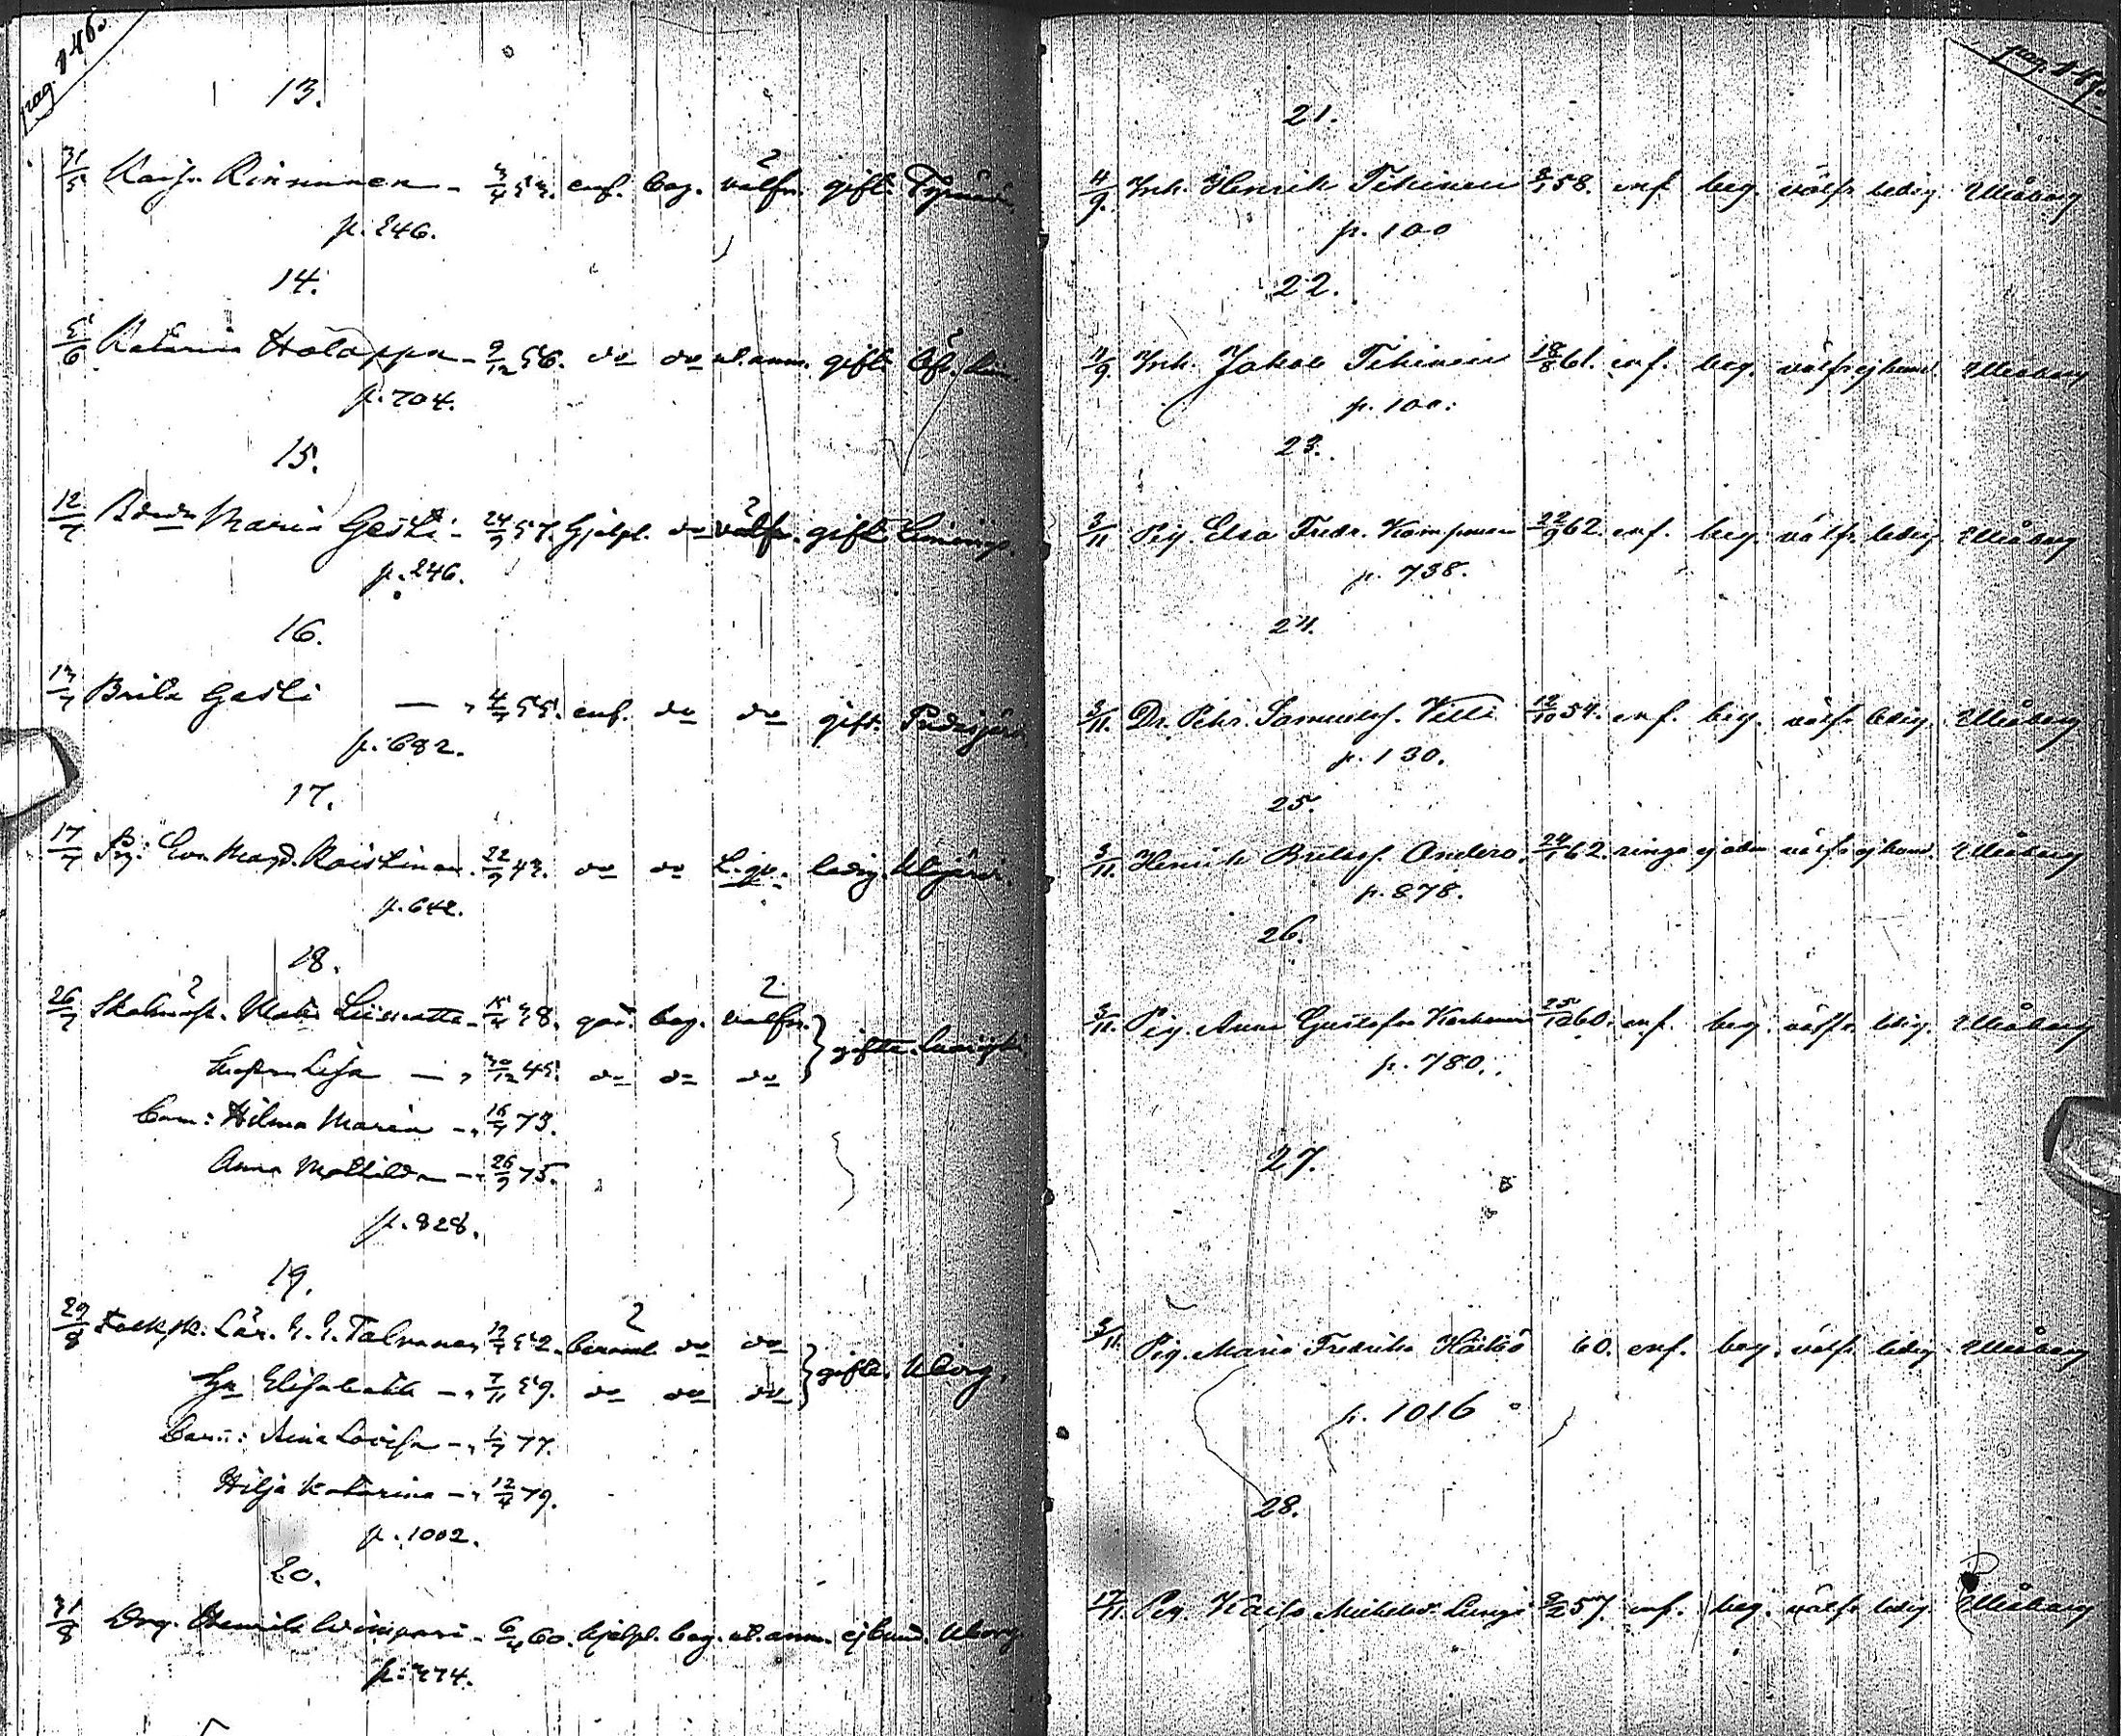 pag. 146.
13.
31/5 Kaisa Rinnunen - 3/4 53. enf. beg. välfr. gift. Tyrnävä
p. 246.
14.
5/6 Katarina Holappa - 9/12 56. do do ut.anm. gift.
p. 704.
15.
12/7 Maria Gesti - 24/9 57. hjelpl. do välfr. gift. Liminga.
p. 246.
16.
13/7 Brita Gesti — " 4/7 55. enf. do do gift. Pudasjärvi
p. 682.
17.
17/7 Pig. Eva Magd. Roistinen. 22/9 43. do do L.gv. ledig.
p. 642.
18.
26/7 Matts 38. god. beg. välfr.
Hustrun Lisa — " 30/12 45. do do do } gifta.
Barn: Hilma Maria — " 16/7 73.
Anna Mathilda — " 26/9 75.
p. 828.
19.
29/8 Folksk. Lär. Talvanen 52. berömt do do
Hu Elisabeth — " 7/11 59. do do do } gifta. Uborg.
Barn: Aina Lovisa — " 1/7 77.
Hilja Katarina — " 12/4 79.
p. 1002.
20.
31/8 Drg. Henrik Wimpari - 6/4 60. hjelpl. beg. ut.anm. ej bund. Uborg
p. 374.
pag. 147.
21.
4/9. Inh. Henrik Tikinen 58. enf. beg. välfr. ledig Uleåborg
p. 100
22.
11/9. Inh. Jakob Tikinen 18/8 61. enf. beg. välfr. ej bund. Uleåborg
p. 100.
23.
3/11 Pig. Elsa Fredr. Komponen 22/9 62. enf. beg. välfr. ledig Uleåborg
p. 738.
24.
3/11. Dr. Pehr Samuelsf. Villi 12/10 54. enf. beg. välfr. ledig Uleåborg
p. 130.
25.
3/11. Henrik Andero. 24/1 62. ringa ej adm välfr. ej bund. Uleåborg
p. 878.
26.
3/11. Pig. Anna Gustafva Karhunen 25/10 60. enf. beg. välfr. ledig. Uleåborg
p. 780.
27.
3/11. Pig. Maria Fredrika 60. enf. beg. välfr. ledig Uleåborg
p. 1016
28.
17/11. Pig. Kaisa Mickelsd. 57. enf. beg. välfr. ledig Uleåborg